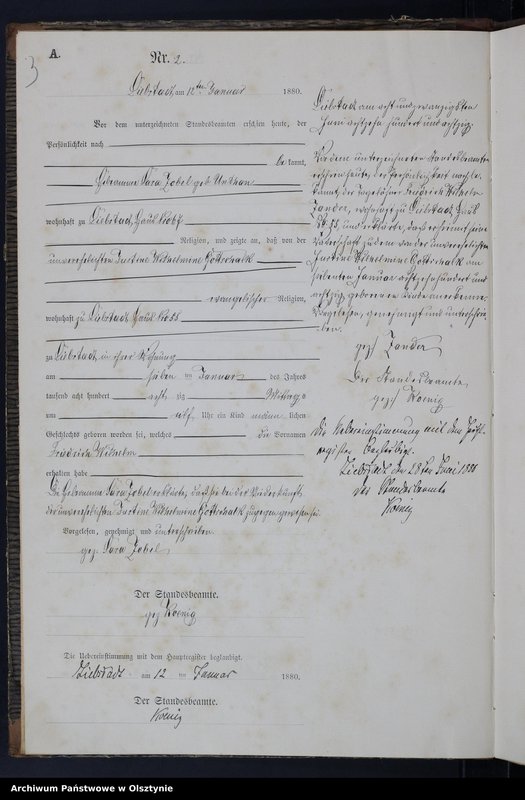 3
A.
Nr. 2.
Liebstadt, am 12ten Januar 1880.
Vor dem unterzeichneten Standesbeamten erschien heute, der
Persönlichkeit nach
be kannt,
Hebeamme Sara Zobel geb.
wohnhaft zu Liebstadt, Haus No 67
Religion, und zeigte an, daß von der
unverehelichten Justine Wilhelmine Gottschalk
evangelischer Religion,
wohnhaft zu Liebstadt Haus No 55
zu Liebstadt in ihrer Wohnung
am sieben ten Januar des Jahres
tausend acht hundert acht zig Mittags
um Uhr ein Kind männ lichen
Geschlechts geboren worden sei, welches die Vornamen
Friedrich Wilhelm
erhalten habe
Die Hebeamme Sara Zobel erklärte, daß sie bei der Niederkunft
der unverehelichten Justine Wilhelmine Gottschalk zugegen gewesen sei
Vorgelesen, genehmigt und unterschrieben.
gez. Sara Zobel
Der Standesbeamte.
gez Koenig
Die Uebereinstimmung mit dem Hauptregister beglaubigt.
Liebstadt am 12 ten Januar 1880.
Der Standesbeamte.
Koenig
Liebstadt am acht und zwanzigsten
Juni achtzehn hundert und achtzig
Vor dem unterzeichneten Standesbeamten
erschien heute, der Persönlichkeit nach be
kannt, der Tagelöhner Friedrich Wilhelm
Zander, wohnhaft zu Liebstadt, Haus
No 55, und erklärte, daß er hiermit seine
Vaterschaft zu dem von der unverehelichten
Justine Wilhelmine Gottschalk am
siebenten Januar achtzehnhundert und
achtzig geborenen Kinde anerkenne.
Vorgelesen, genehmigt und unterschrie
ben.
gez. Zander
Der Standesbeamte
gez. Koenig
Die Uebereinstimmung mit dem Haupt
register beglaubigt.
Liebstadt den 28ten Juni 1880
Der Standesbeamte
Koenig
Archiwum Państwowe w Olsztynie